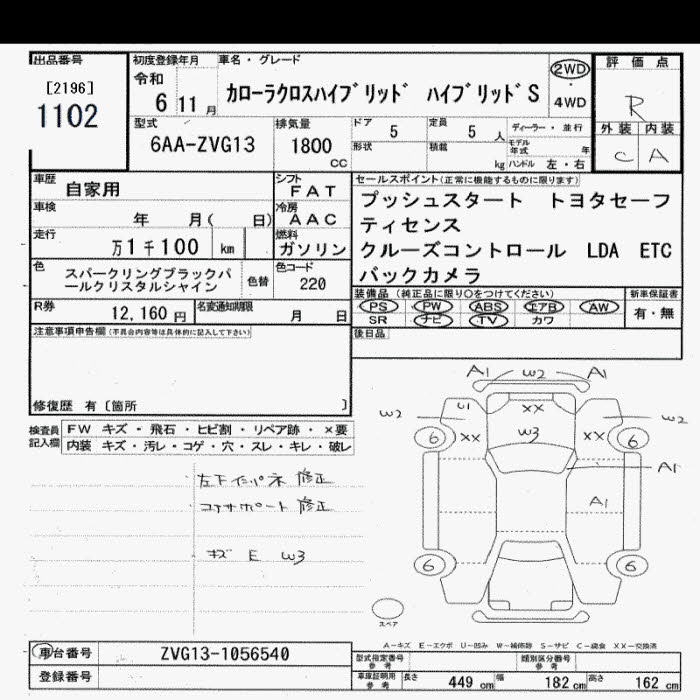 出品番号
[2196]
1102
初度登録年月
令和
6 11月
車名・グレード
カローラクロスハイブリッド ハイブリッドS
2WD
・
4WD
評価点
R
外装 内装
C A
型式
6AA-ZVG13
排気量
1800
CC
ドア 5
定員 5 人
ディーラー・並行
形状
積載 kg
モデル年式 年
ハンドル 左・右
車歴 自家用
シフト
FAT
車検 年 月( 日)
冷房
AAC
走行 万1千100 km
燃料
ガソリン
色 スパークリングブラックパールクリスタルシャイン
色替
色コード
220
R券 12,160円
名変通知期限 月 日
セールスポイント(正常に機能するものに限ります)
プッシュスタート トヨタセーフ
ティセンス
クルーズコントロール LDA ETC
バックカメラ
装備品(純正品に限り○をつけてください)
新車保証書
PS PW ABS エアB AW
SR ナビ TV カワ
有・無
後日品
注意事項申告欄(不具合内容等は具体的に記入して下さい)
修復歴 有〔箇所 〕
検査員記入欄
FW キズ・飛石・ヒビ割・リペア跡・×要
内装 キズ・汚レ・コゲ・穴・スレ・キレ・破レ
修正
コアサポート 修正
キズ E W3
A1 W2 A1
W2 U1 XX W2
6 XX W3 XX 6
A1
A1
6 6
スペア
A−キズ E−エクボ U−凹み W−補修跡 S−サビ C−腐食 XX−交換済
車台番号 ZVG13-1056540
登録番号
型式指定番号
参考
類別区分番号
参考
車庫証明用
参考
長さ 449 cm 幅 182 cm 高さ 162 cm